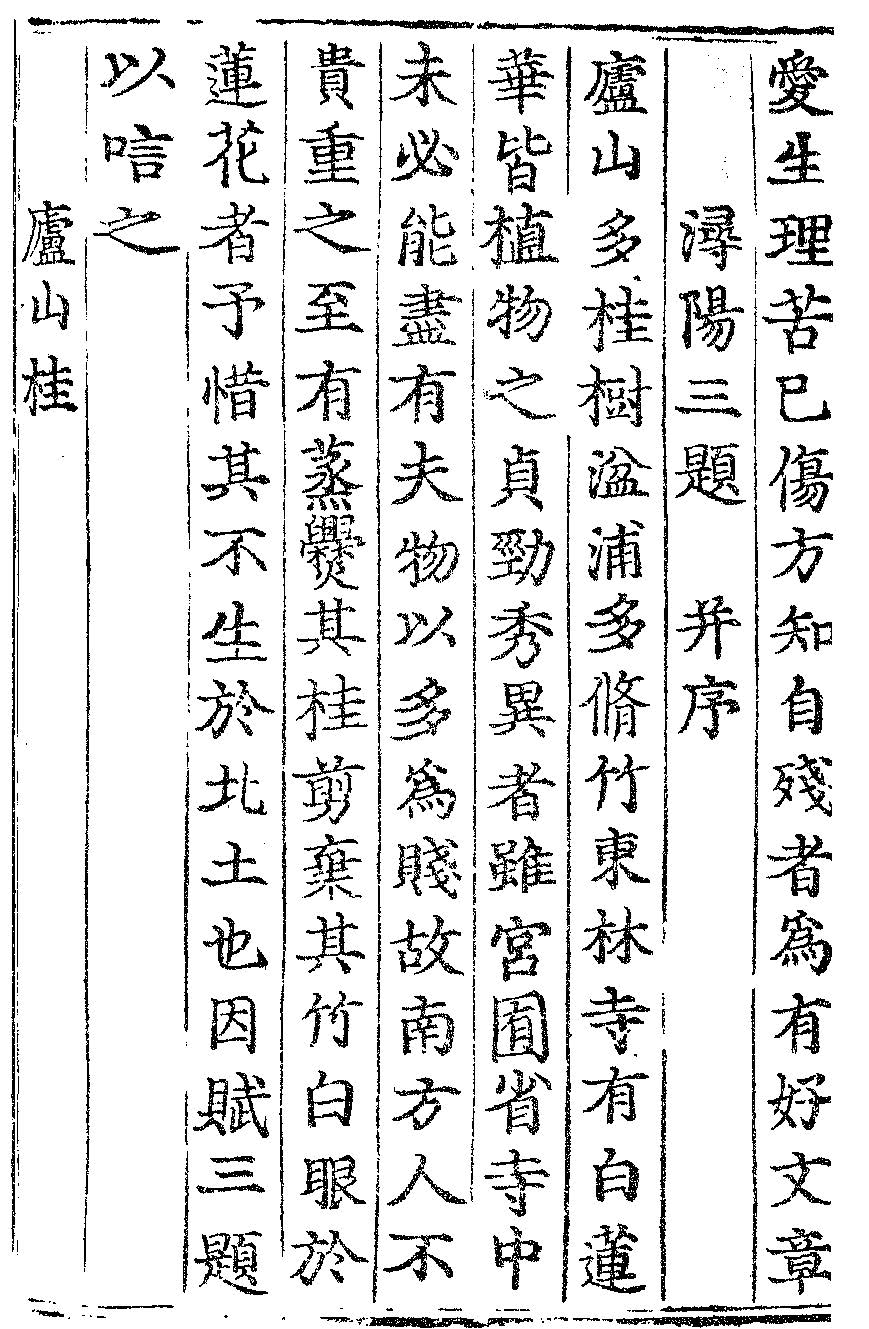 愛生理苦已傷方知自殘者爲有好文章
潯陽三題　并序
廬山多桂樹湓浦多脩竹東林寺有白蓮
華皆植物之貞勁秀異者雖宮囿省寺中
未必能盡有夫物以多爲賤故南方人不
貴重之至有蒸爨其桂剪棄其竹白眼於
蓮花者予惜其不生於北土也因賦三題
以唁之
廬山桂